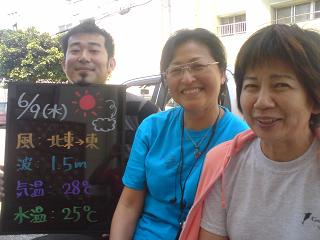 6/9(木)
風：北東→東
波：1.5m
気温：28℃
水温：25℃